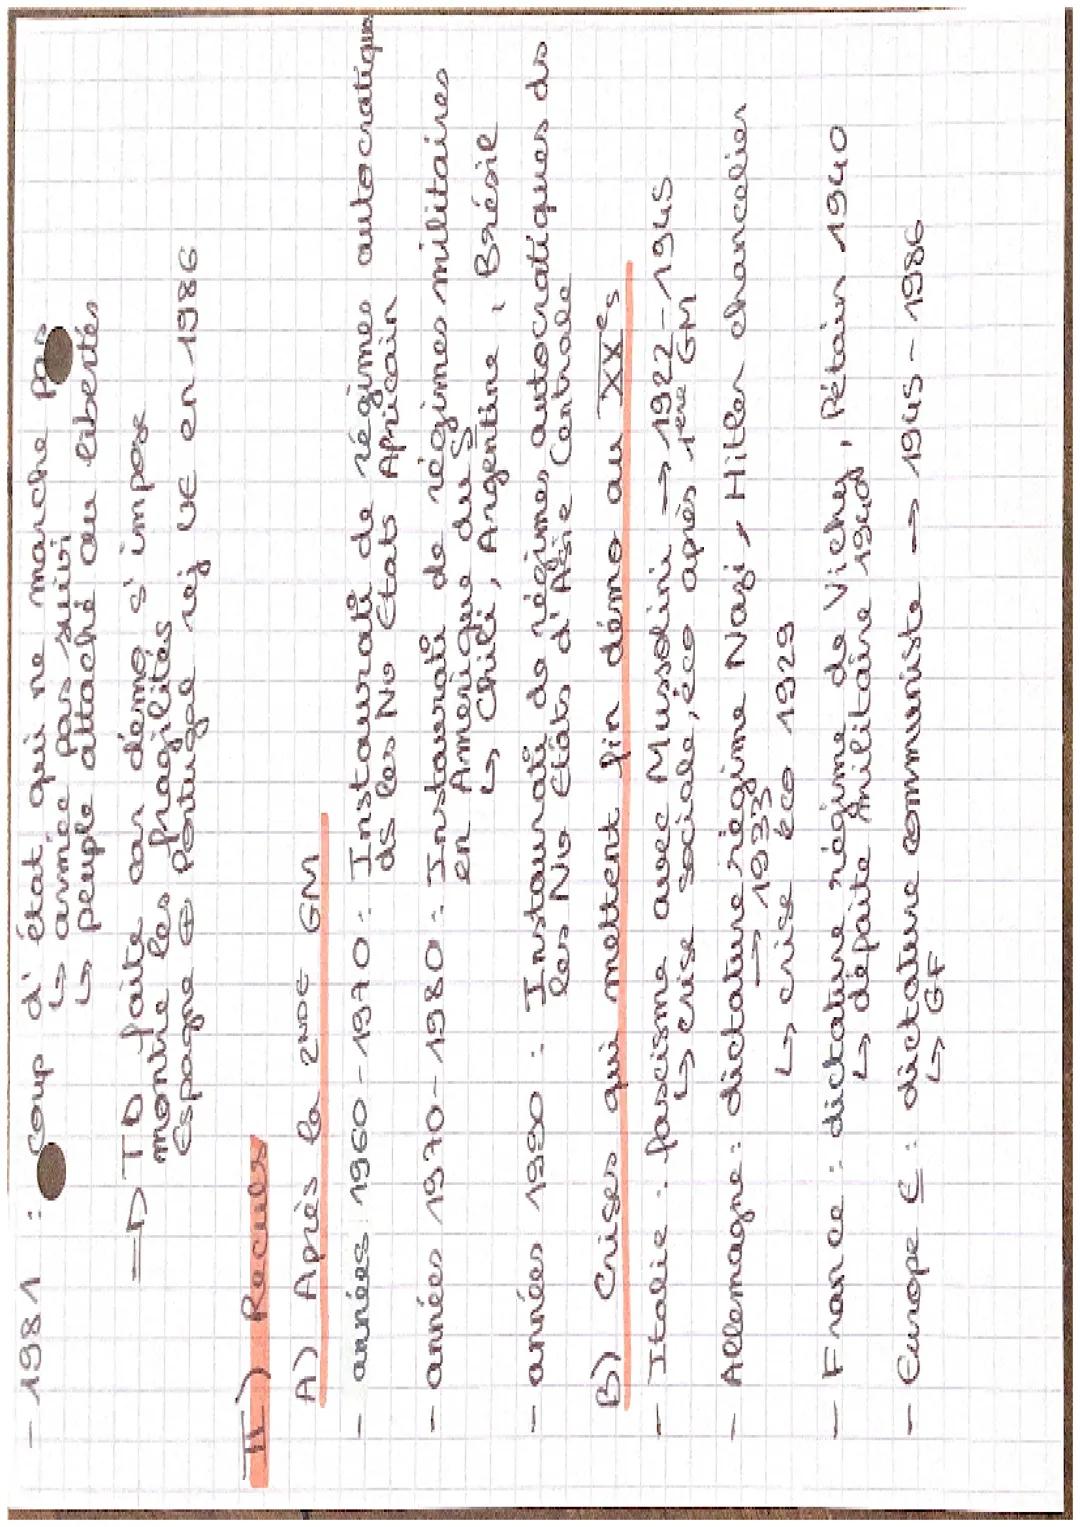 - 1981 : coup d'état qui ne marche pas
↳ armée pas suivi
↳ peuple attaché au libertés
⇒ TD faite car démo s'impose
montre les fragilités
Espagne ⊕ Portugal rej UE en 1986
II) Reculs
A) Après la 2NDE GM
- années 1960-1970 : Instaurat° de régimes autocratique
ds les Nv Etats Africain
- années 1970-1980 : Instaurat° de régimes militaires
en Amerique du S
↳ Chili, Argentine, Brésil
- années 1990 : Instaurat° de régimes autocratiques ds
les Nv Etats d'Asie Centrale
B) Crises qui mettent fin démo au XXes
- Italie : fascisme avec Mussolini → 1922-1945
↳ crise sociale, éco après 1ère GM
- Allemagne : dictature régime Nazi, Hitler chancelier
→ 1933
↳ crise éco 1929
- France : dictature régime de Vichy, Pétain 1940
↳ défaite militaire 1940
- Europe E : dictature communiste → 1945-1986
↳ GF